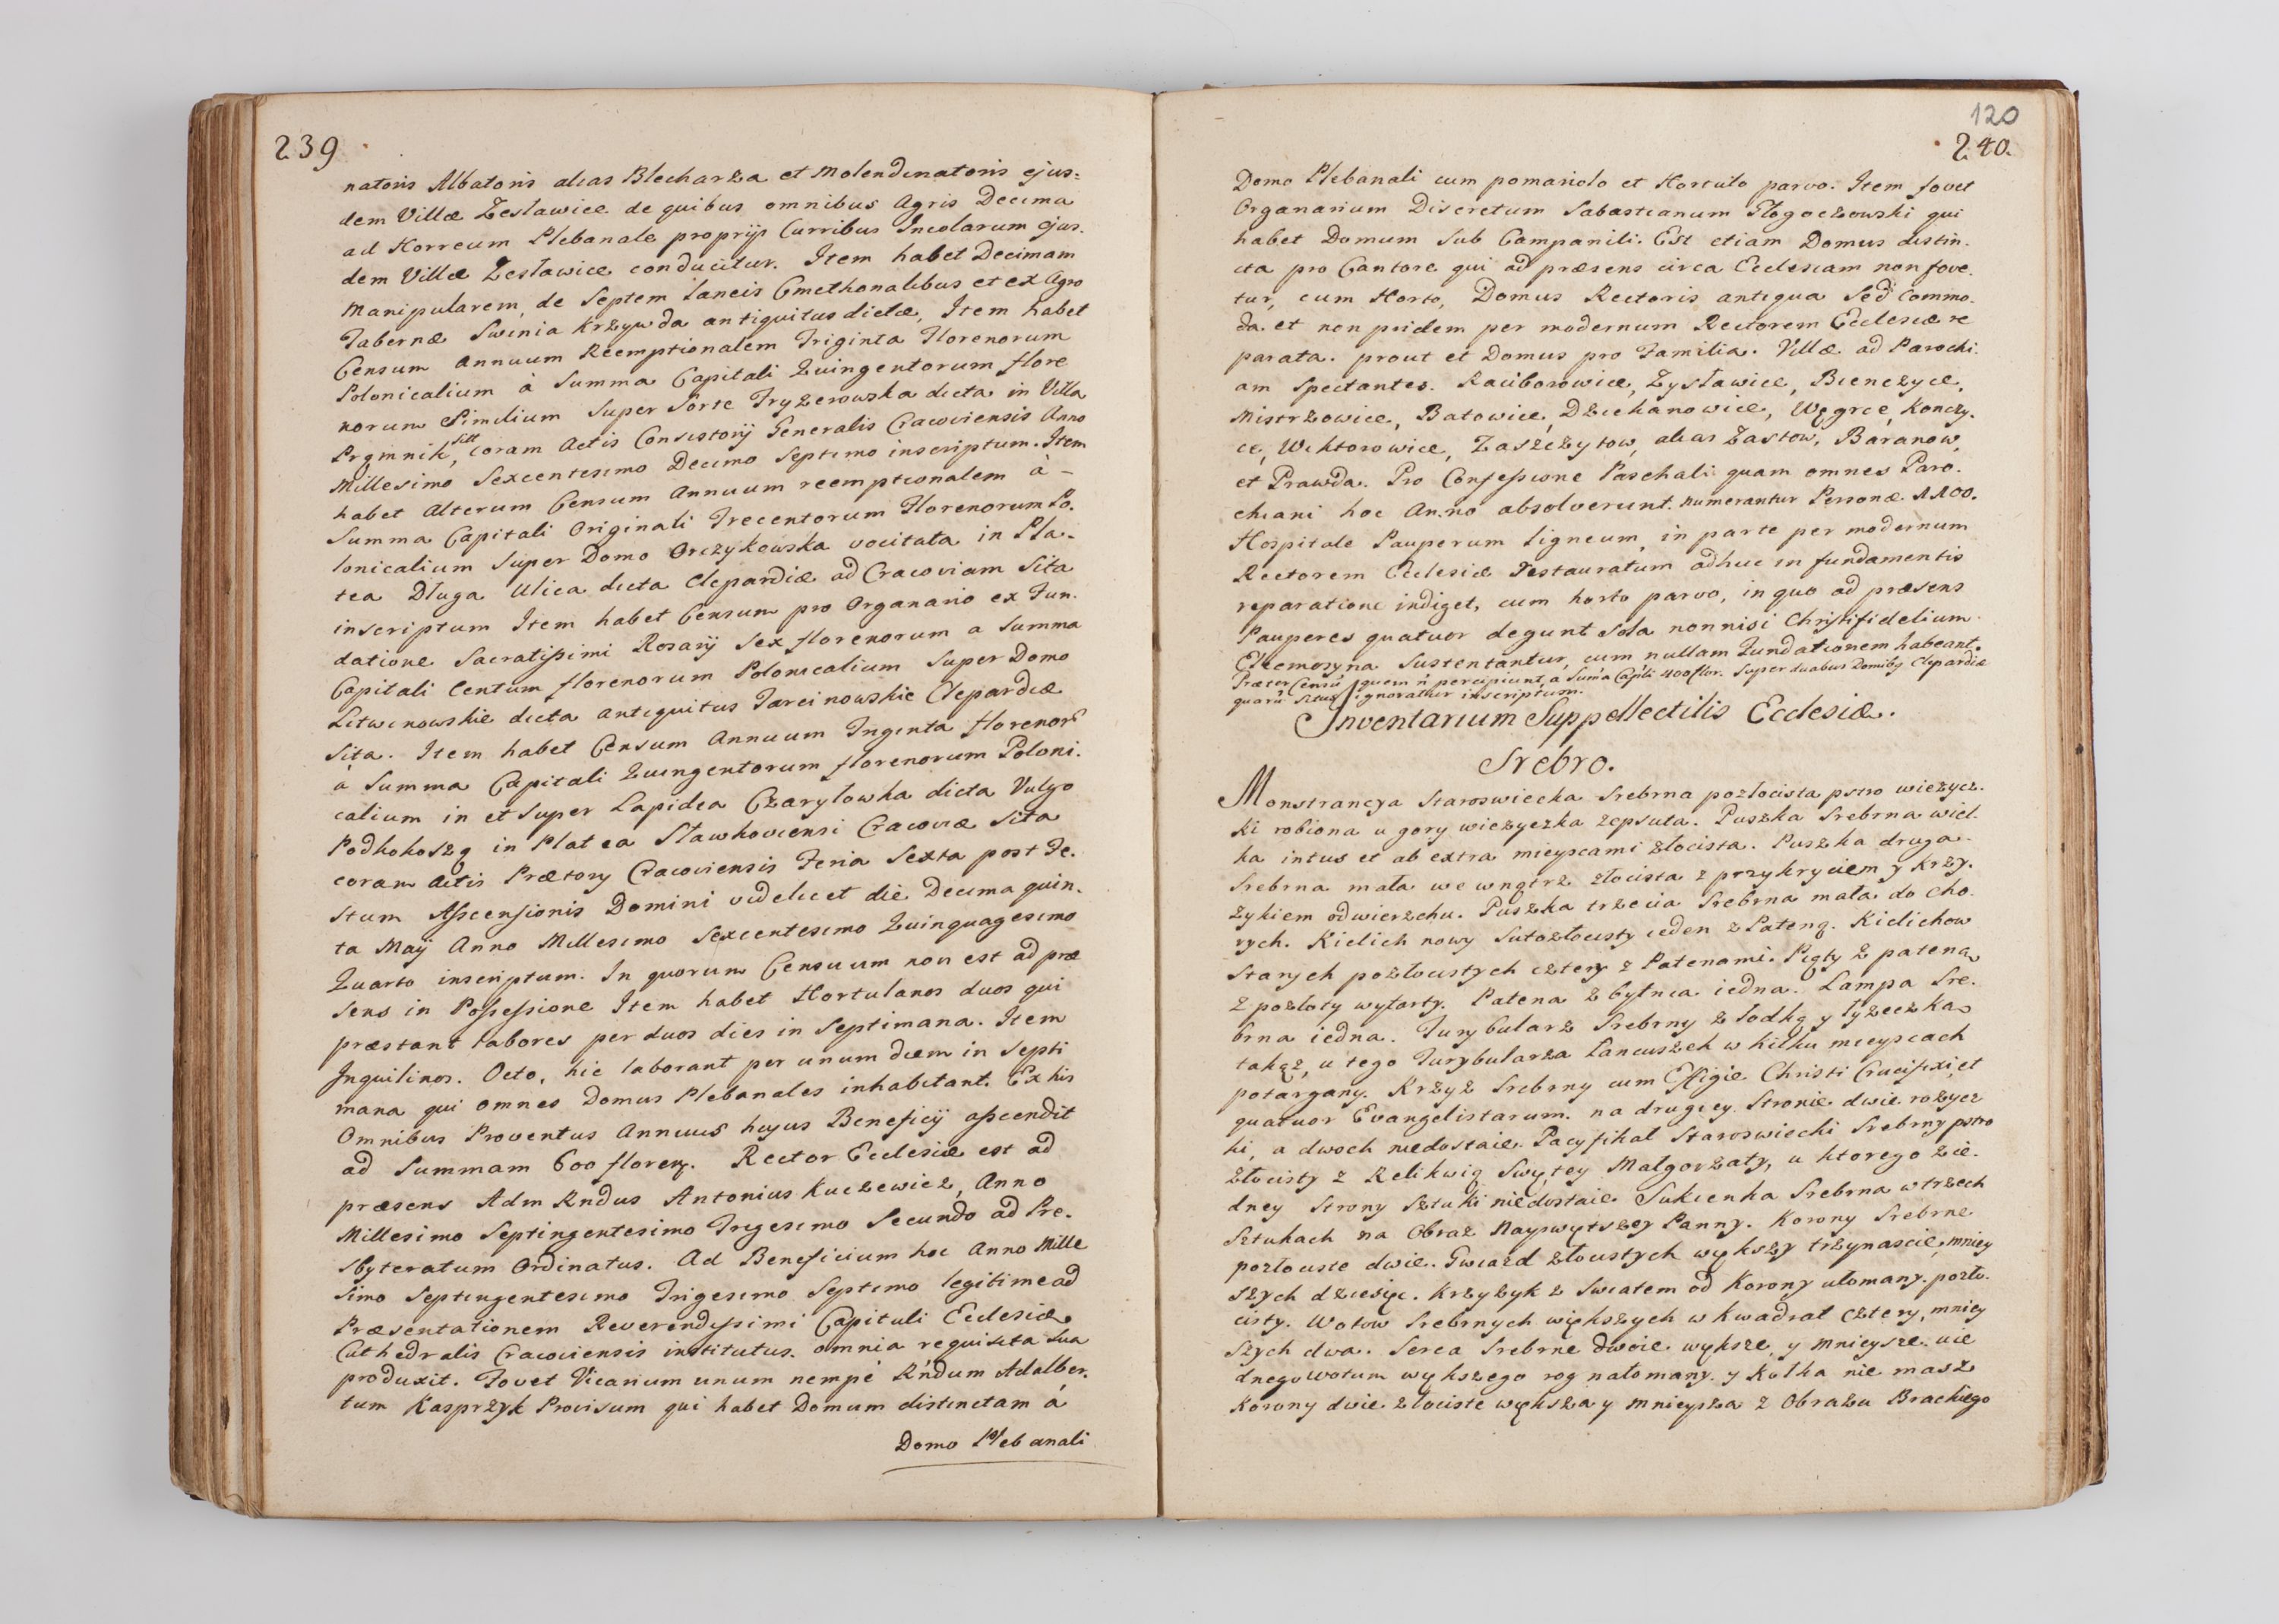 239
natoris Albatoris alias Blecharza et Molendinatoris ejus=
dem Villæ Zesławice de quibus omnibus Agris Decima
ad Horreum Plebanale proprijs Curribus Incolarum ejus.
dem Villæ Zesławice conducitur. Item habet Decimam
Manipularem, de Septem Laneis Cmethonalibus et ex Agro
Tabernæ Swinia Krzywda antiquitus dictæ, Item habet
Censum Annuum Reemptionalem Triginta Florenorum
Polonicalium à Summa Capitali Quingentorum flore
norum Similium Super Sorte Fryzerowska dicta in Villa
Prąmnik, coram Actis Consistorij Generalis Cracoviensis Anno
Millesimo Sexcentesimo Decimo Septimo inscriptum. Item
habet Alterum Censum Annuum reemptionalem à -
Summa Capitali Originali Trecentorum Florenorum Po.
lonicalium Super Domo Orczykowska vocitata in Pla-
tea Długa Ulica dicta Clepardiæ ad Cracoviam Sita
inscriptum Item habet Censum pro Organario ex Fun.
datione Sacratissimi Rosarij Sex florenorum a Summa
Capitali Centum florenorum Polonicalium Super Domo
Litwinowskie dicta antiquitus Tarcinowskie Clepardiæ
Sita. Item habet Censum Annuum Triginta florenorũ
à Summa Capitali Quingentorum florenorum Poloni.
calium in et Super Lapidea Czaryłowka dicta Vulgo
Podkokoszą in Platea Sławkoviensi Cracoviæ Sita
coram Actis Prætorij Cracoviensis Feria Sexta post Fe.
stum Ascensionis Domini videlicet die Decima quin.
ta Maij Anno Millesimo Sexcentesimo Quinquagesimo
Quarto inscriptum. In quorum Censuum non est ad præ
sens in Possessione Item habet Hortulanos duos qui
præstant labores per duos dies in Septimana. Item
Inquilinos. Octo, hic laborant per unum diem in Septi
mana qui omnes Domus Plebanales inhabitant. Ex his
Omnibus Proventus Annuus hujus Beneficij ascendit
ad Summam 600 floren. Rector Ecclesiæ est ad
præsens Adm Rndus Antonius Kuczewicz, Anno
Millesimo Septingentesimo Trigesimo Secundo ad Pre.
sbyteratum Ordinatus. Ad Beneficium hoc Anno Mille
simo Septingentesimo Trigesimo Septimo legitime ad
Præsentationem Reverendissimi Capituli Ecclesiæ
Cathedralis Cracoviensis institutus. omnia requisita sua
produxit. Fovet Vicarium unum nempè Rndum Adalber.
tum Kasprzyk Provisum qui habet Domum distinctam à
Domo Plebanali
120
240.
Domo Plebanali cum pomariolo et Hortulo parvo. Item fovet
Organarium Discretum Sabastianum Głogoczowski qui
habet Domum Sub Campanili. Est etiam Domus distin.
cta pro Cantore qui ad præsens circa Ecclesiam non fove.
tur, cum Horto, Domus Rectoris antiqua Sed Commo.
da et non pridem per modernum Rectorem Ecclesiæ re
parata. prout et Domus pro Familia. Villæ ad Parochi.
am Spectantes. Raciborowice, Zysławice, Bienczyce,
Mistrzowice, Batowice, Dziekanowice, Węgrce, Konczy.
ce, Wiktorowice, Zaszczytow, alias Zastow, Baranow,
et Prawda. Pro Confessione Paschali quam omnes Paro.
chiani hoc Anno absolverunt. numerantur Personæ 1100.
Hospitale Pauperum ligneum, in parte per modernum
Rectorem Ecclesiæ restauratum adhuc in fundamentis
reparatione indiget, cum horto parvo, in quo ad præsens
Pauperes quatuor degunt Sola nonnisi Christifidelium
Eleemosyna Sustentantur, cum nullam Fundationem habeant.
Præter Censũ quem ñ percipiunt, a Suma Capli 400 flor. Super duabus Domibq Clepardiæ
quarũ Situs ignoratur inscriptum.
Inventarium Suppellectilis Ecclesiæ.
Srebro.
Monstrancya Staroswiecka Srebrna pozłocista pstro wieżycz.
ki robiona u gory wieżyczka zepsuta. Puszka Srebrna wiel.
ka intus et ab extra mieyscami złocista. Puszka druga
Srebrna mała we wnątrz złocista z przykryciem y krzy.
żykiem odwierzchu. Puszka trzecia Srebrna mała do cho.
rych. Kielich nowy Sutozłocisty ieden z Pateną. Kielichow
Starych pozłocistych cztery z Patenami. Piąty z pateną
z pozłoty wytarty. Patena zbytnia iedna. Lampa Sre.
brna iedna. Turybularz Srebrny z łodką y łyżeczką
takąż, u tego Turybularza Lancuszek w kilku mieyscach
potargany. Krzyż Srebrny cum Effigie Christi Crucifixi, et
quatuor Evangelistarum. na drugiey Stronie dwie rożycz
ki, a dwoch niedostaie. Pacyfikał Staroswiecki Srebrny pstro
złocisty z Relikwią Swiętey Małgorzaty, u ktorego zie.
dney Strony Sztuki niedostaie. Sukienka Srebrna w trzech
Sztukach na Obraz Nayswiętszey Panny. Korony Srebrne
pozłociste dwie. Gwiazd złocistych większy trzynascie, mniey
szych dziesięc. Krzyżyk z Swiatem od Korony ułomany. pozło.
cisty. Wotow Srebrnych większych w kwadrat cztery, mniey
szych dwa. Serca Srebrne dwoie większe, y mnieysze. u ie
dnego wotum większego rog nałomany. y Kołka nie masz
Korony dwie złociste większa y mnieysza z Obrazu Brackiego